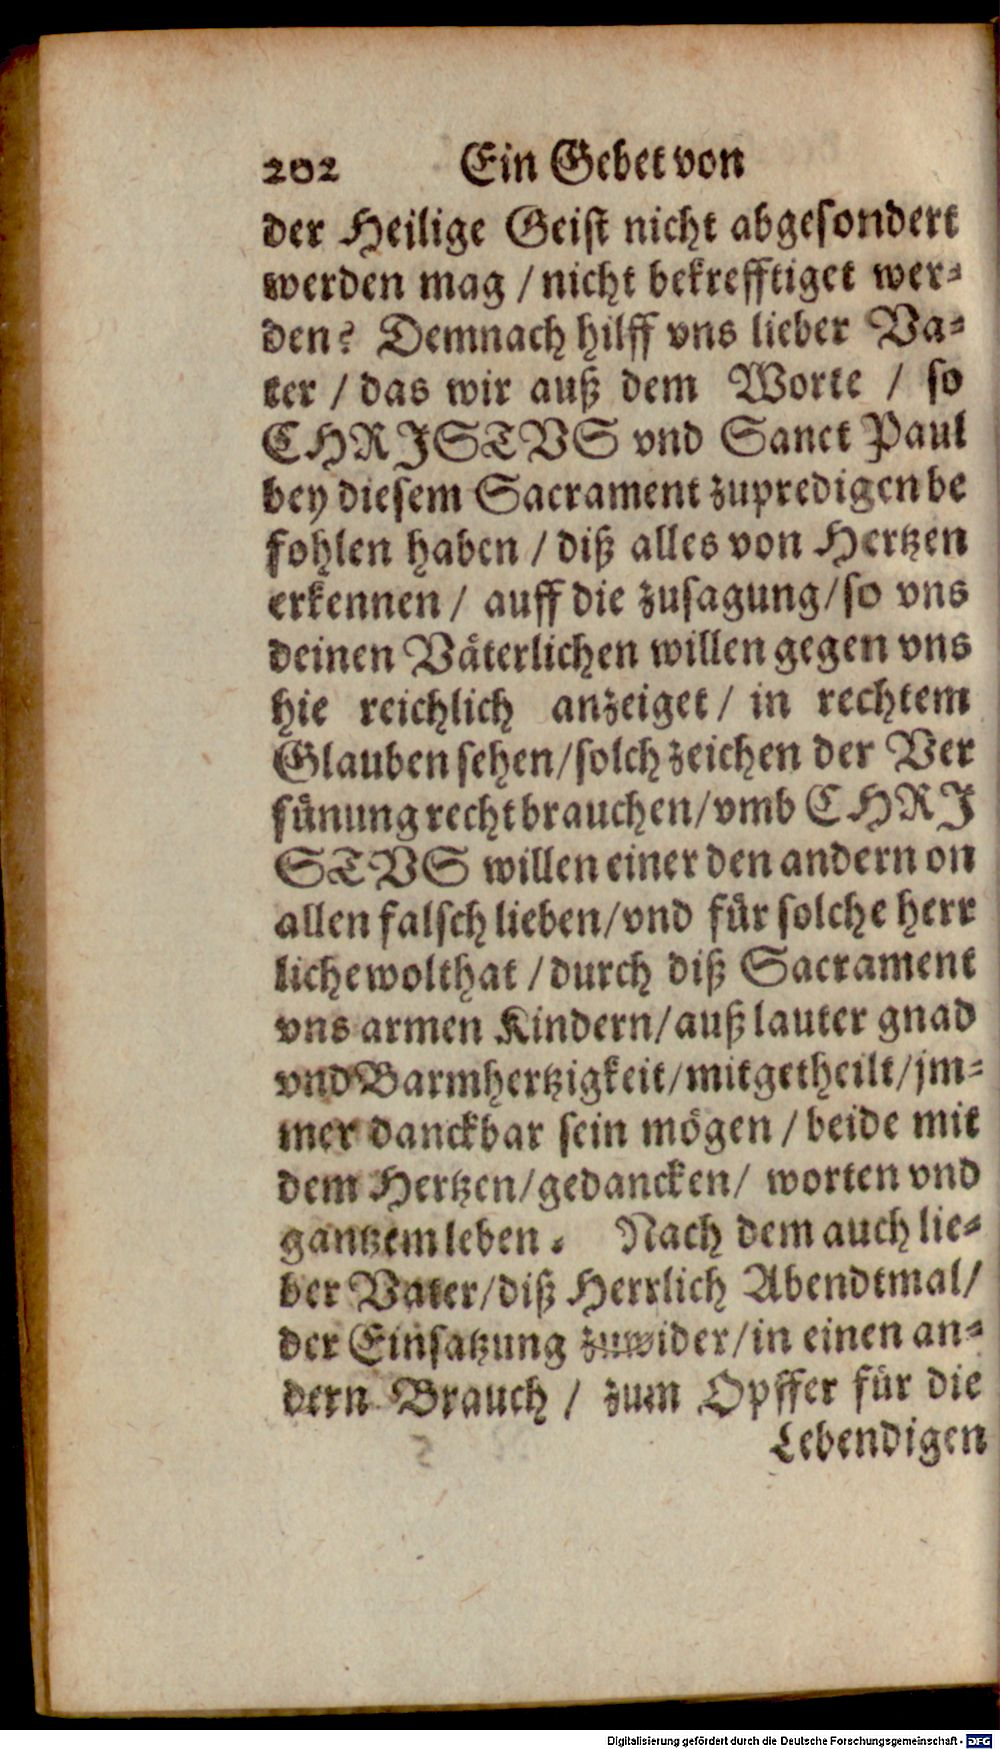 202 Ein Gebet von
der Heilige Geist nicht abgesondert
werden mag / nicht bekrefftiget wer⸗
den? Demnach hilff vns lieber Va⸗
ter / das wir auß dem Worte / so
CHRJSTVS vnd Sanct Paul
bey diesem Sacrament zupredigen be
fohlen haben / diß alles von Hertzen
erkennen / auff die zusagung/so vns
deinen Väterlichen willen gegen vns
hie reichlich anzeiget / in rechtem
Glauben sehen/solch zeichen der Ver
sünung recht brauchen/vmb CHRJ
STVS willen einer den andern on
allen falsch lieben/vnd für solche herr
liche wolthat / durch diß Sacrament
vns armen Kindern/auß lauter gnad
vnd Barmhertzigkeit/mitgetheilt/jm⸗
mer danckbar sein mögen / beide mit
dem Hertzen/gedancken/ worten vnd
gantzem leben. Nach dem auch lie⸗
ber Vater/diß Herrlich Abendtmal/
der Einsatzung zuwider/in einen an⸗
dern Brauch / zum Opffer für die
Lebendigen
Digitalisierung gefördert durch die Deutsche Forschungsgemeinschaft - DFG